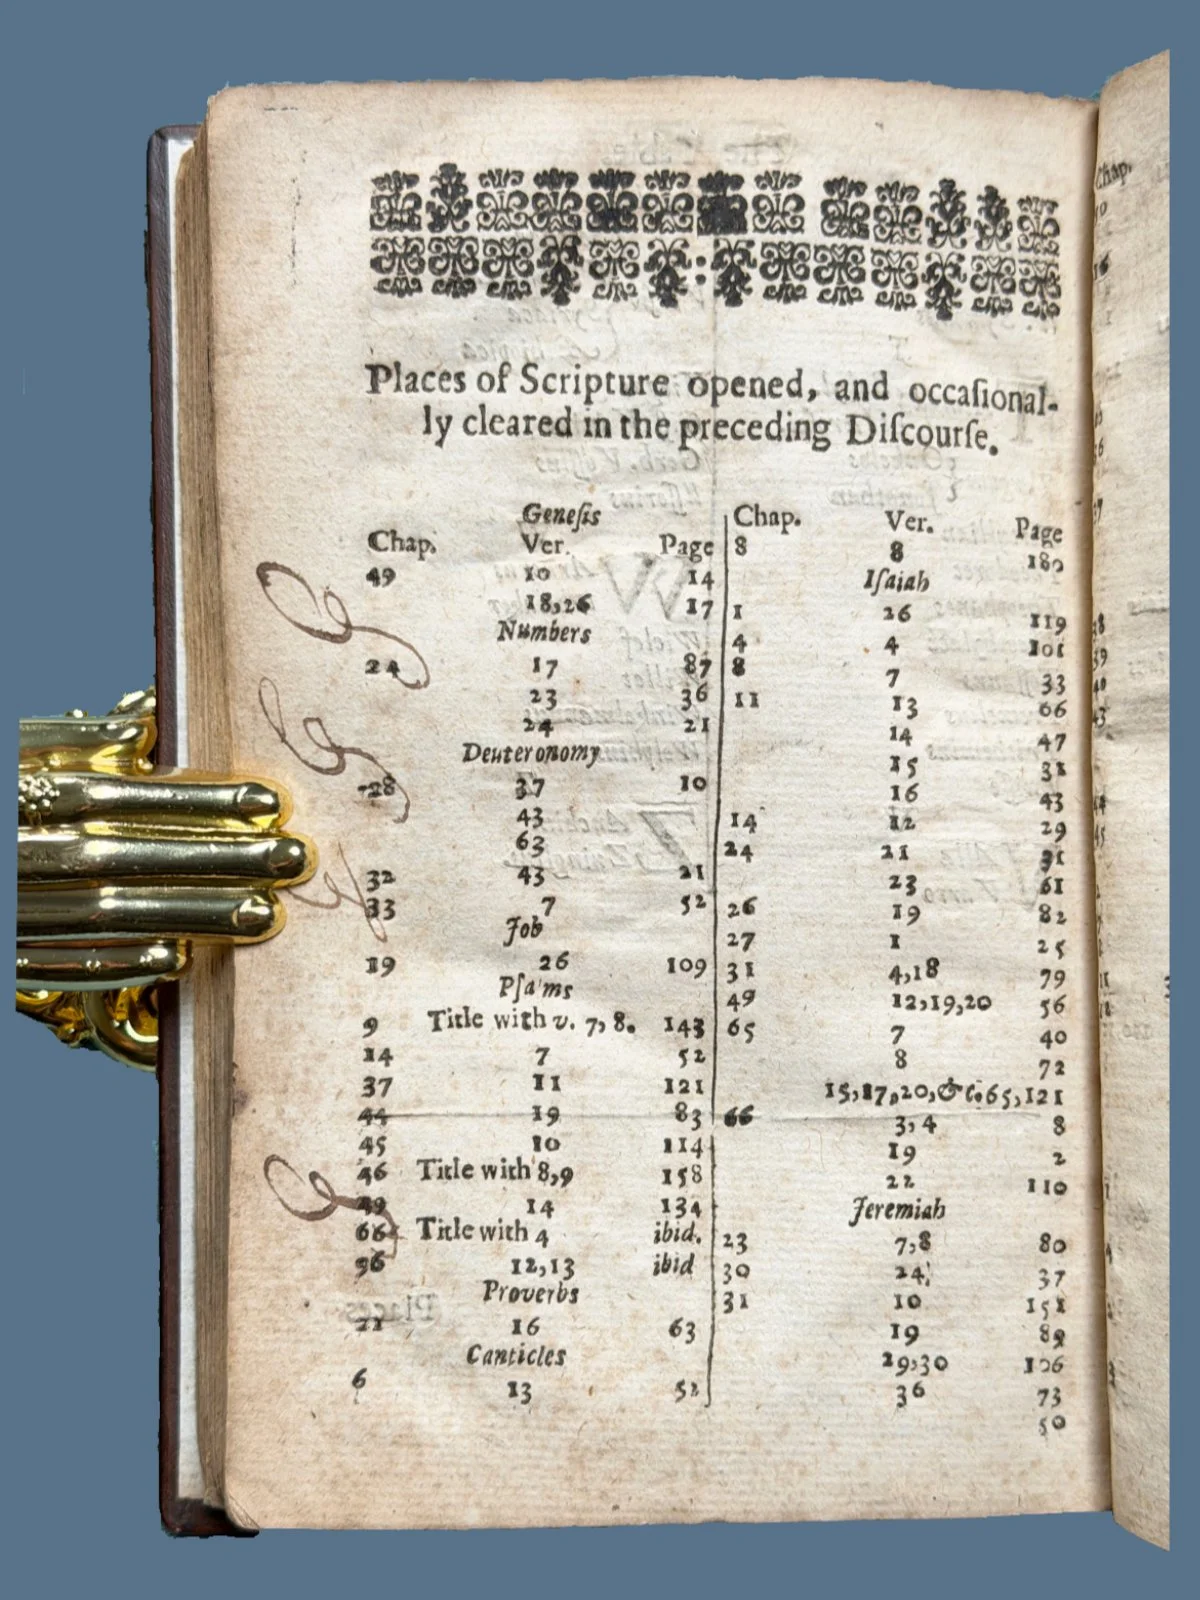 Places of Scripture opened, and occaſional-
ly cleared in the preceding Diſcourſe.
Geneſis
Chap. Ver. Page
49 10 14
18,26 17
Numbers
24 17 87
23 36
24 21
Deuteronomy
28 37 10
43
63
32 43 21
33 7 52
Job
19 26 109
Pſa'ms
9 Title with v. 7, 8. 143
14 7 52
37 11 121
44 19 83
45 10 114
46 Title with 8,9 158
49 14 134
66 Title with 4 ibid.
96 12,13 ibid
Proverbs
21 16 63
Canticles
6 13 52
Chap. Ver. Page
8 8 180
Iſaiah
1 26 119
4 4 101
8 7 33
11 13 66
14 47
15 31
16 43
14 12 29
24 21
23 61
26 19 82
27 1 25
31 4,18 79
49 12,19,20 56
65 7 40
8 72
15,17,20,&c. 65,121
66 3,4 8
19 2
22 110
Jeremiah
23 7,8 80
30 24 37
31 10 151
19 89
29,30 106
36 73
50
Chap.